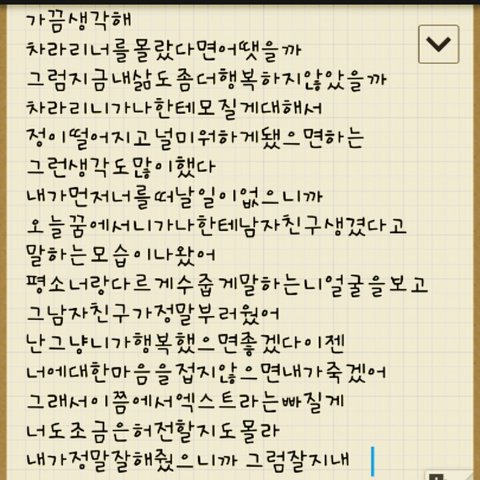 가끔생각해
차라리너를몰랐다면어땟을까
그럼지금내삶도좀더행복하지않았을까
차라리니가나한테모질게대해서
정이떨어지고널미워하게됐으면하는
그런생각도많이했다
내가먼저너를떠날일이없으니까
오늘꿈에서니가나한테남자친구생겼다고
말하는모습이나왔어
평소너랑다르게수줍게말하는니얼굴을보고
그남자친구가정말부러웠어
난그냥니가행복했으면좋겠다이젠
너에대한마음을접지않으면내가죽겠어
그래서이쯤에서엑스트라는빠질게
너도조금은허전할지도몰라
내가정말잘해줬으니까 그럼잘지내